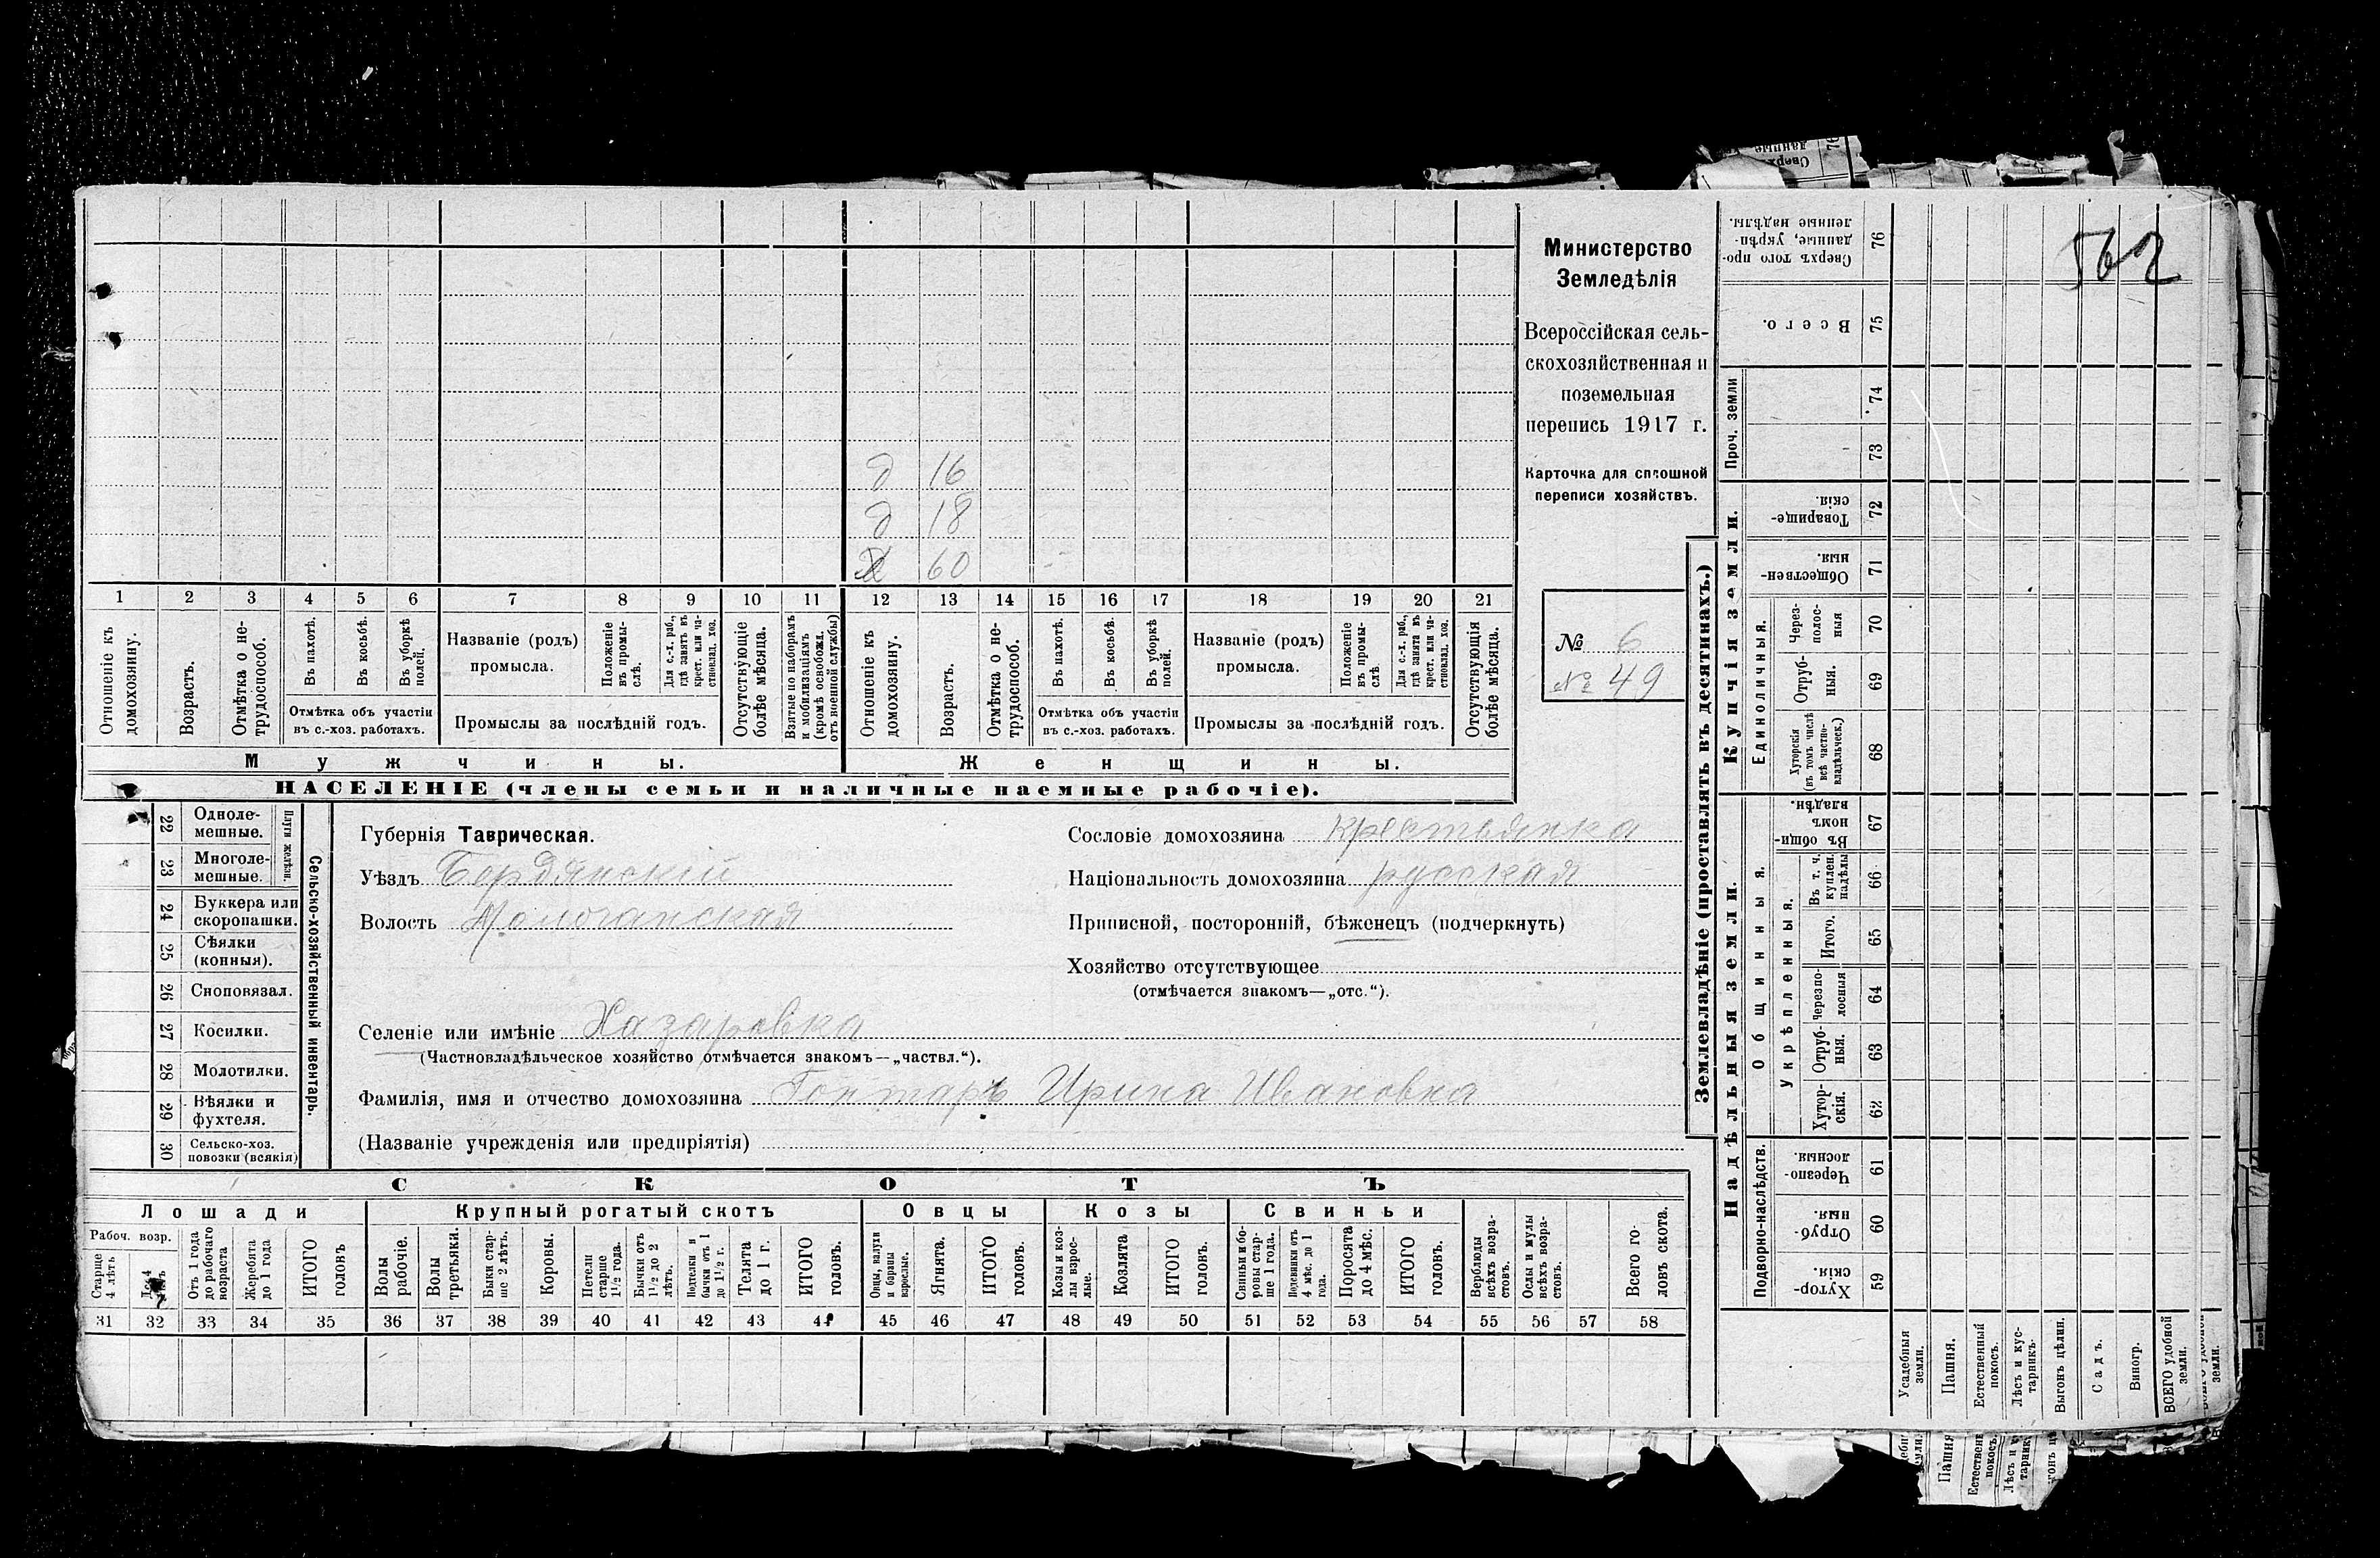 562
Министерство
Земледѣлія
Всероссійская сель-
скохозяйственная и
поземельная
перепись 1917 г.
Карточка для сплошной
переписи хозяйствъ.
№ 6
№ 49
д 16
д 18
Х 60
1 2 3 4 5 6 7 8 9 10 11 12 13 14 15 16 17 18 19 20 21
Отношеніе къ домохозяину.
Возрастъ.
Отмѣтка о не-
трудоспособ.
Въ пахотѣ.
Въ косьбѣ.
Въ уборкѣ полей.
Отмѣтка объ участіи
въ с.-хоз. работахъ.
Названіе (родъ)
промысла.
Положеніе
въ промы-
слѣ.
Для с.-х. раб.,
гдѣ занятъ въ
крест. или ча-
стновлад. хоз.
Промыслы за послѣдній годъ.
Отсутствующіе
болѣе мѣсяца.
Взятые по наборамъ
и мобилизаціямъ
(кромѣ освобожд.
отъ военной службы)
Отношеніе къ
домохозяину.
Возрастъ.
Отмѣтка о не-
трудоспособ.
Въ пахотѣ.
Въ косьбѣ.
Въ уборкѣ
полей.
Отмѣтка объ участіи
въ с.-хоз. работахъ.
Названіе (родъ)
промысла.
Положеніе
въ промы-
слѣ
Для с.-х. раб.,
гдѣ занята въ
крест. или ча-
стновлад. хоз.
Промыслы за послѣдній годъ.
Отсутствующія
болѣе мѣсяца.
Мужчины.
Женщины.
НАСЕЛЕНІЕ (члены семьи и наличные наемные рабочіе).
22 Одноле-
мешные.
23 Многоле-
мешные.
Плуги желѣзн.
24 Буккера или
скоропашки.
25 Сѣялки
(конныя).
26 Сноповязал.
27 Косилки.
28 Молотилки.
29 Вѣялки и
фухтеля.
30 Сельско-хоз.
повозки (всякія)
Сельско-хозяйственный инвентарь.
Губернія Таврическая.
Уѣздъ Бердянскій
Волость Молочанская
Сословіе домохозяина крестьянка
Національность домохозяина русская
Приписной, посторонній, бѣженецъ (подчеркнуть)
Хозяйство отсутствующее
(отмѣчается знакомъ—„отс.“).
Селеніе или имѣніе Хазаровка
(Частновладѣльческое хозяйство отмѣчается знакомъ—„частвл.“).
Фамилія, имя и отчество домохозяина Гонтарь Ирина Ивановна
(Названіе учрежденія или предпріятія)
СКОТЪ
Лошади
Крупный рогатый скотъ
Овцы
Козы
Свиньи
Рабоч. возр.
Старше
4 лѣтъ
Отъ 1 года
до рабочаго
возраста
Жеребята
до 1 года
ИТОГО
головъ
Волы
рабочіе.
Волы
третьяки.
Быки стар-
ше 2 лѣтъ.
Коровы.
Нетели
старше
1½ года.
Бычки отъ
1½ до 2
лѣтъ.
Подтелки и
бычки отъ 1
до 1½ г.
Телята
до 1 г.
ИТОГО
головъ.
Овцы, валухи
и бараны
взрослые.
Ягнята.
ИТОГО
головъ.
Козы и коз-
лы взрос-
лые.
Козлята
ИТОГО
головъ.
Свиньи и бо-
ровы стар-
ше 1 года.
Подсвинки отъ
4 мѣс. до 1
года.
Поросята
до 4 мѣс.
ИТОГО
головъ.
Верблюды
всѣхъ возра-
стовъ.
Ослы и мулы
всѣхъ возра-
стовъ.
Всего го-
ловъ скота.
31 32 33 34 35 36 37 38 39 40 41 42 43 44 45 46 47 48 49 50 51 52 53 54 55 56 57 58
Землевладѣніе (проставлять въ десятинахъ.)
Купчія земли.
Надѣльныя земли.
Проч. земли
Единоличныя.
Общинныя.
Укрѣпленныя.
Подворно-наслѣдств.
Сверхъ того про-
данные, укрѣп-
ленные надѣлы.
76
Всего.
75
74
73
Товарище-
скія.
72
Обществен-
ныя.
71
Через-
полос-
ныя
70
Отруб-
ныя.
69
Хуторскія
(въ томъ числѣ
всѣ частно-
владѣльческ.)
68
Въ общин-
номъ
владѣн.
67
Въ т. ч.
куплен.
надѣлы
66
Итого.
65
Черезпо-
лосныя
64
Отруб-
ныя.
63
Хутор-
скія.
62
Черезпо-
лосныя.
61
Отруб-
ныя.
60
Хутор-
скія.
59
Усадебныя
земли.
Пашня.
Естественный
покосъ.
Лѣсъ и кус-
тарникъ.
Выгонъ цѣлин.
Садъ.
Виногр.
ВСЕГО удобной
земли.